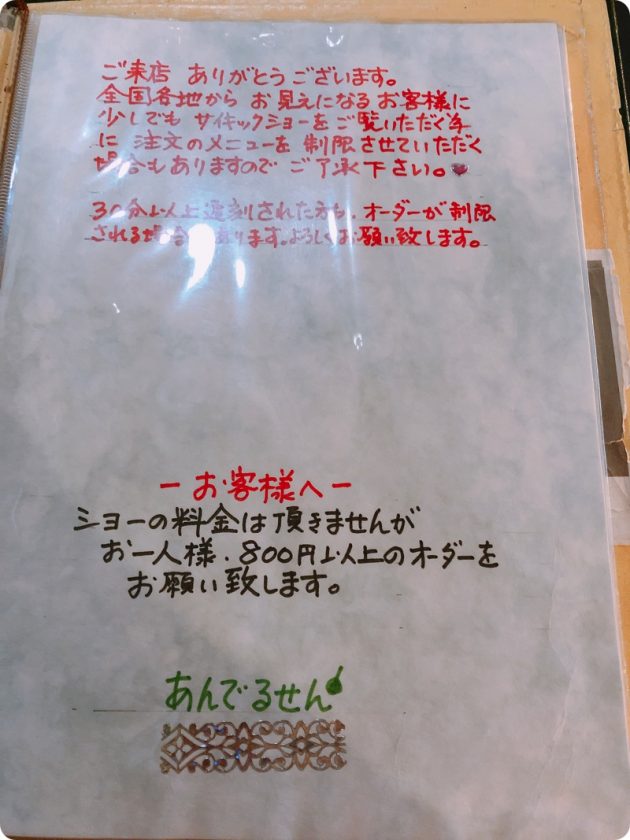 ご来店 ありがとうございます。
全国各地から お見えになる お客様に
少しでも サイキックショーを ご覧いただく為
に 注文のメニューを 制限させていただく
場合もありますので ご了承下さい。
30分以上遅刻された方も、オーダーが制限
される場合があります。よろしくお願い致します。
ーお客様へー
ショーの料金は頂きませんが
お一人様.800円以上のオーダーを
お願い致します。
あんでるせん